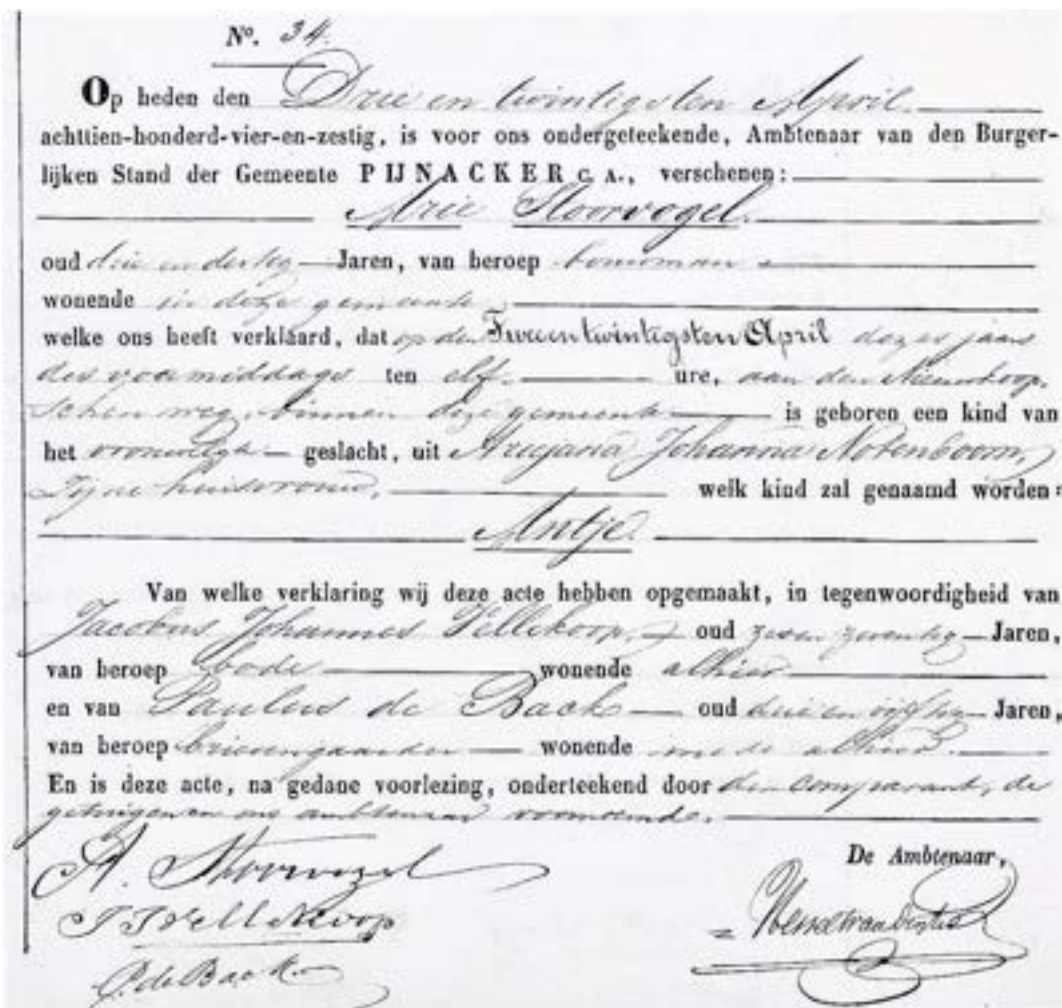 No. 34.
Op heden den Drie en twintigsten April
achttien-honderd-vier-en-zestig, is voor ons ondergeteekende, Ambtenaar van den Burger-
lijken Stand der Gemeente PIJNACKER C. A., verschenen:
Arie Stoorvogel.
oud drie en dertig Jaren, van beroep bouwman
wonende in deze gemeente
welke ons heeft verklaard, dat op den Twee en twintigsten April dezes jaars
des voormiddags ten elf ure, aan den Nieuwkoop
schen weg, binnen deze gemeente is geboren een kind van
het vrouwelijk geslacht, uit Johanna Notenboom,
zijne huisvrouw, welk kind zal genaamd worden:
Antje.
Van welke verklaring wij deze acte hebben opgemaakt, in tegenwoordigheid van
Jacobus Johannes Vellekoop, oud zeven zeventig Jaren,
van beroep bode wonende alhier
en van Paulus de Back oud drie en vijftig Jaren,
van beroep brievengaarder wonende mede alhier.
En is deze acte, na gedane voorlezing, onderteekend door den comparant, de
getuigen en ons ambtenaar voornoemd.
De Ambtenaar,
A. Stoorvogel
J J Vellekoop
P. de Back